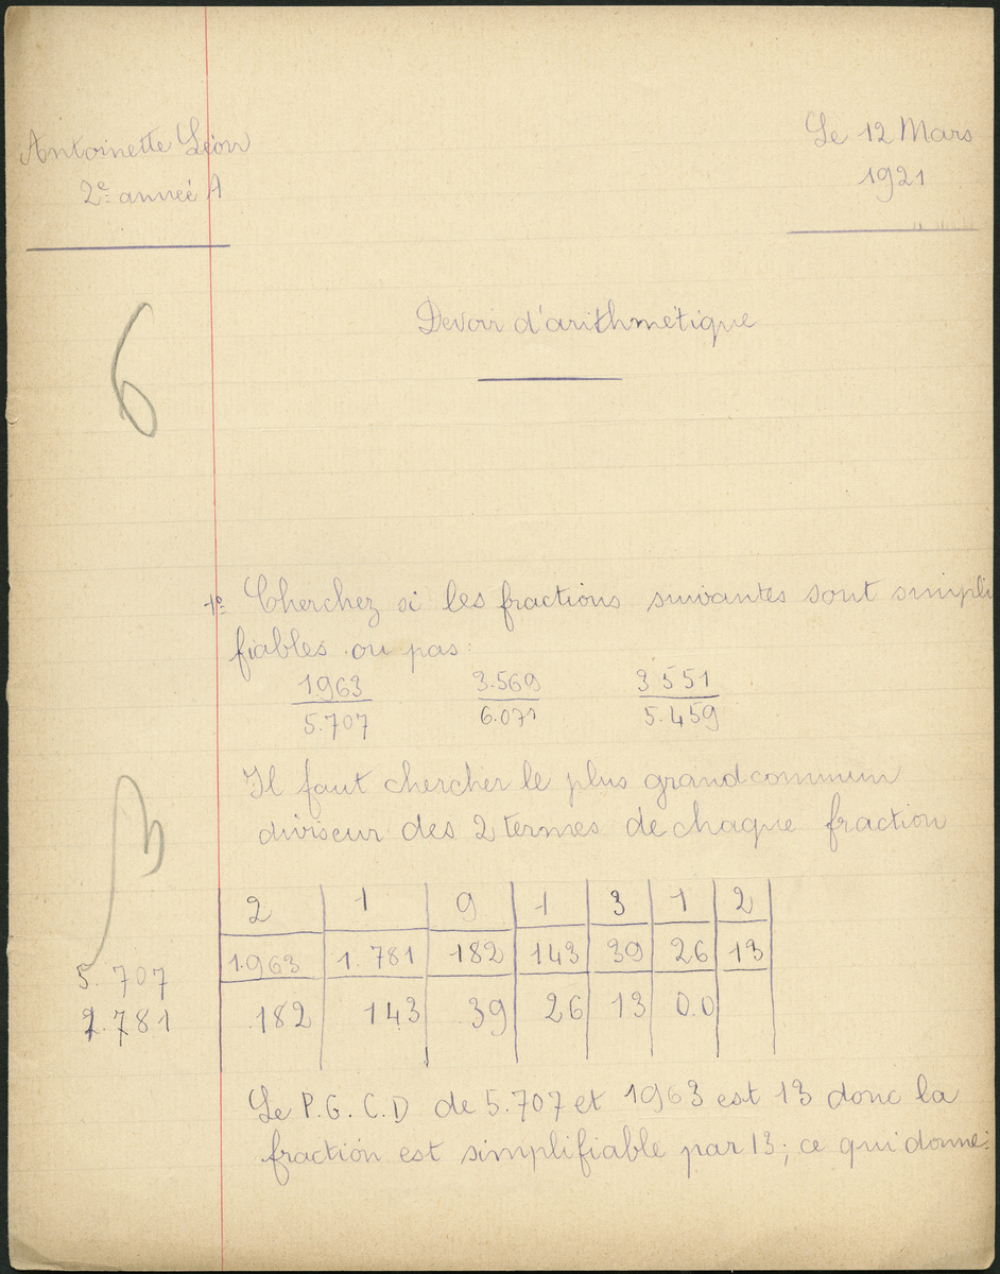 Antoinette Léon
2e année A
Le 12 Mars
1921
6
Devoir d'arithmétique
1º Cherchez si les fractions suivantes sont simpli
fiables ou pas:
1963 3.569 3 551
5.707 6.071 5.459
Il faut chercher le plus grand commun
diviseur des 2 termes de chaque fraction
2 1 9 1 3 1 2
5.707 1.963 1.781 182 143 39 26 13
1.781 182 143 39 26 13 0.0
Le P.G.C.D de 5.707 et 1963 est 13 donc la
fraction est simplifiable par 13; ce qui donne: